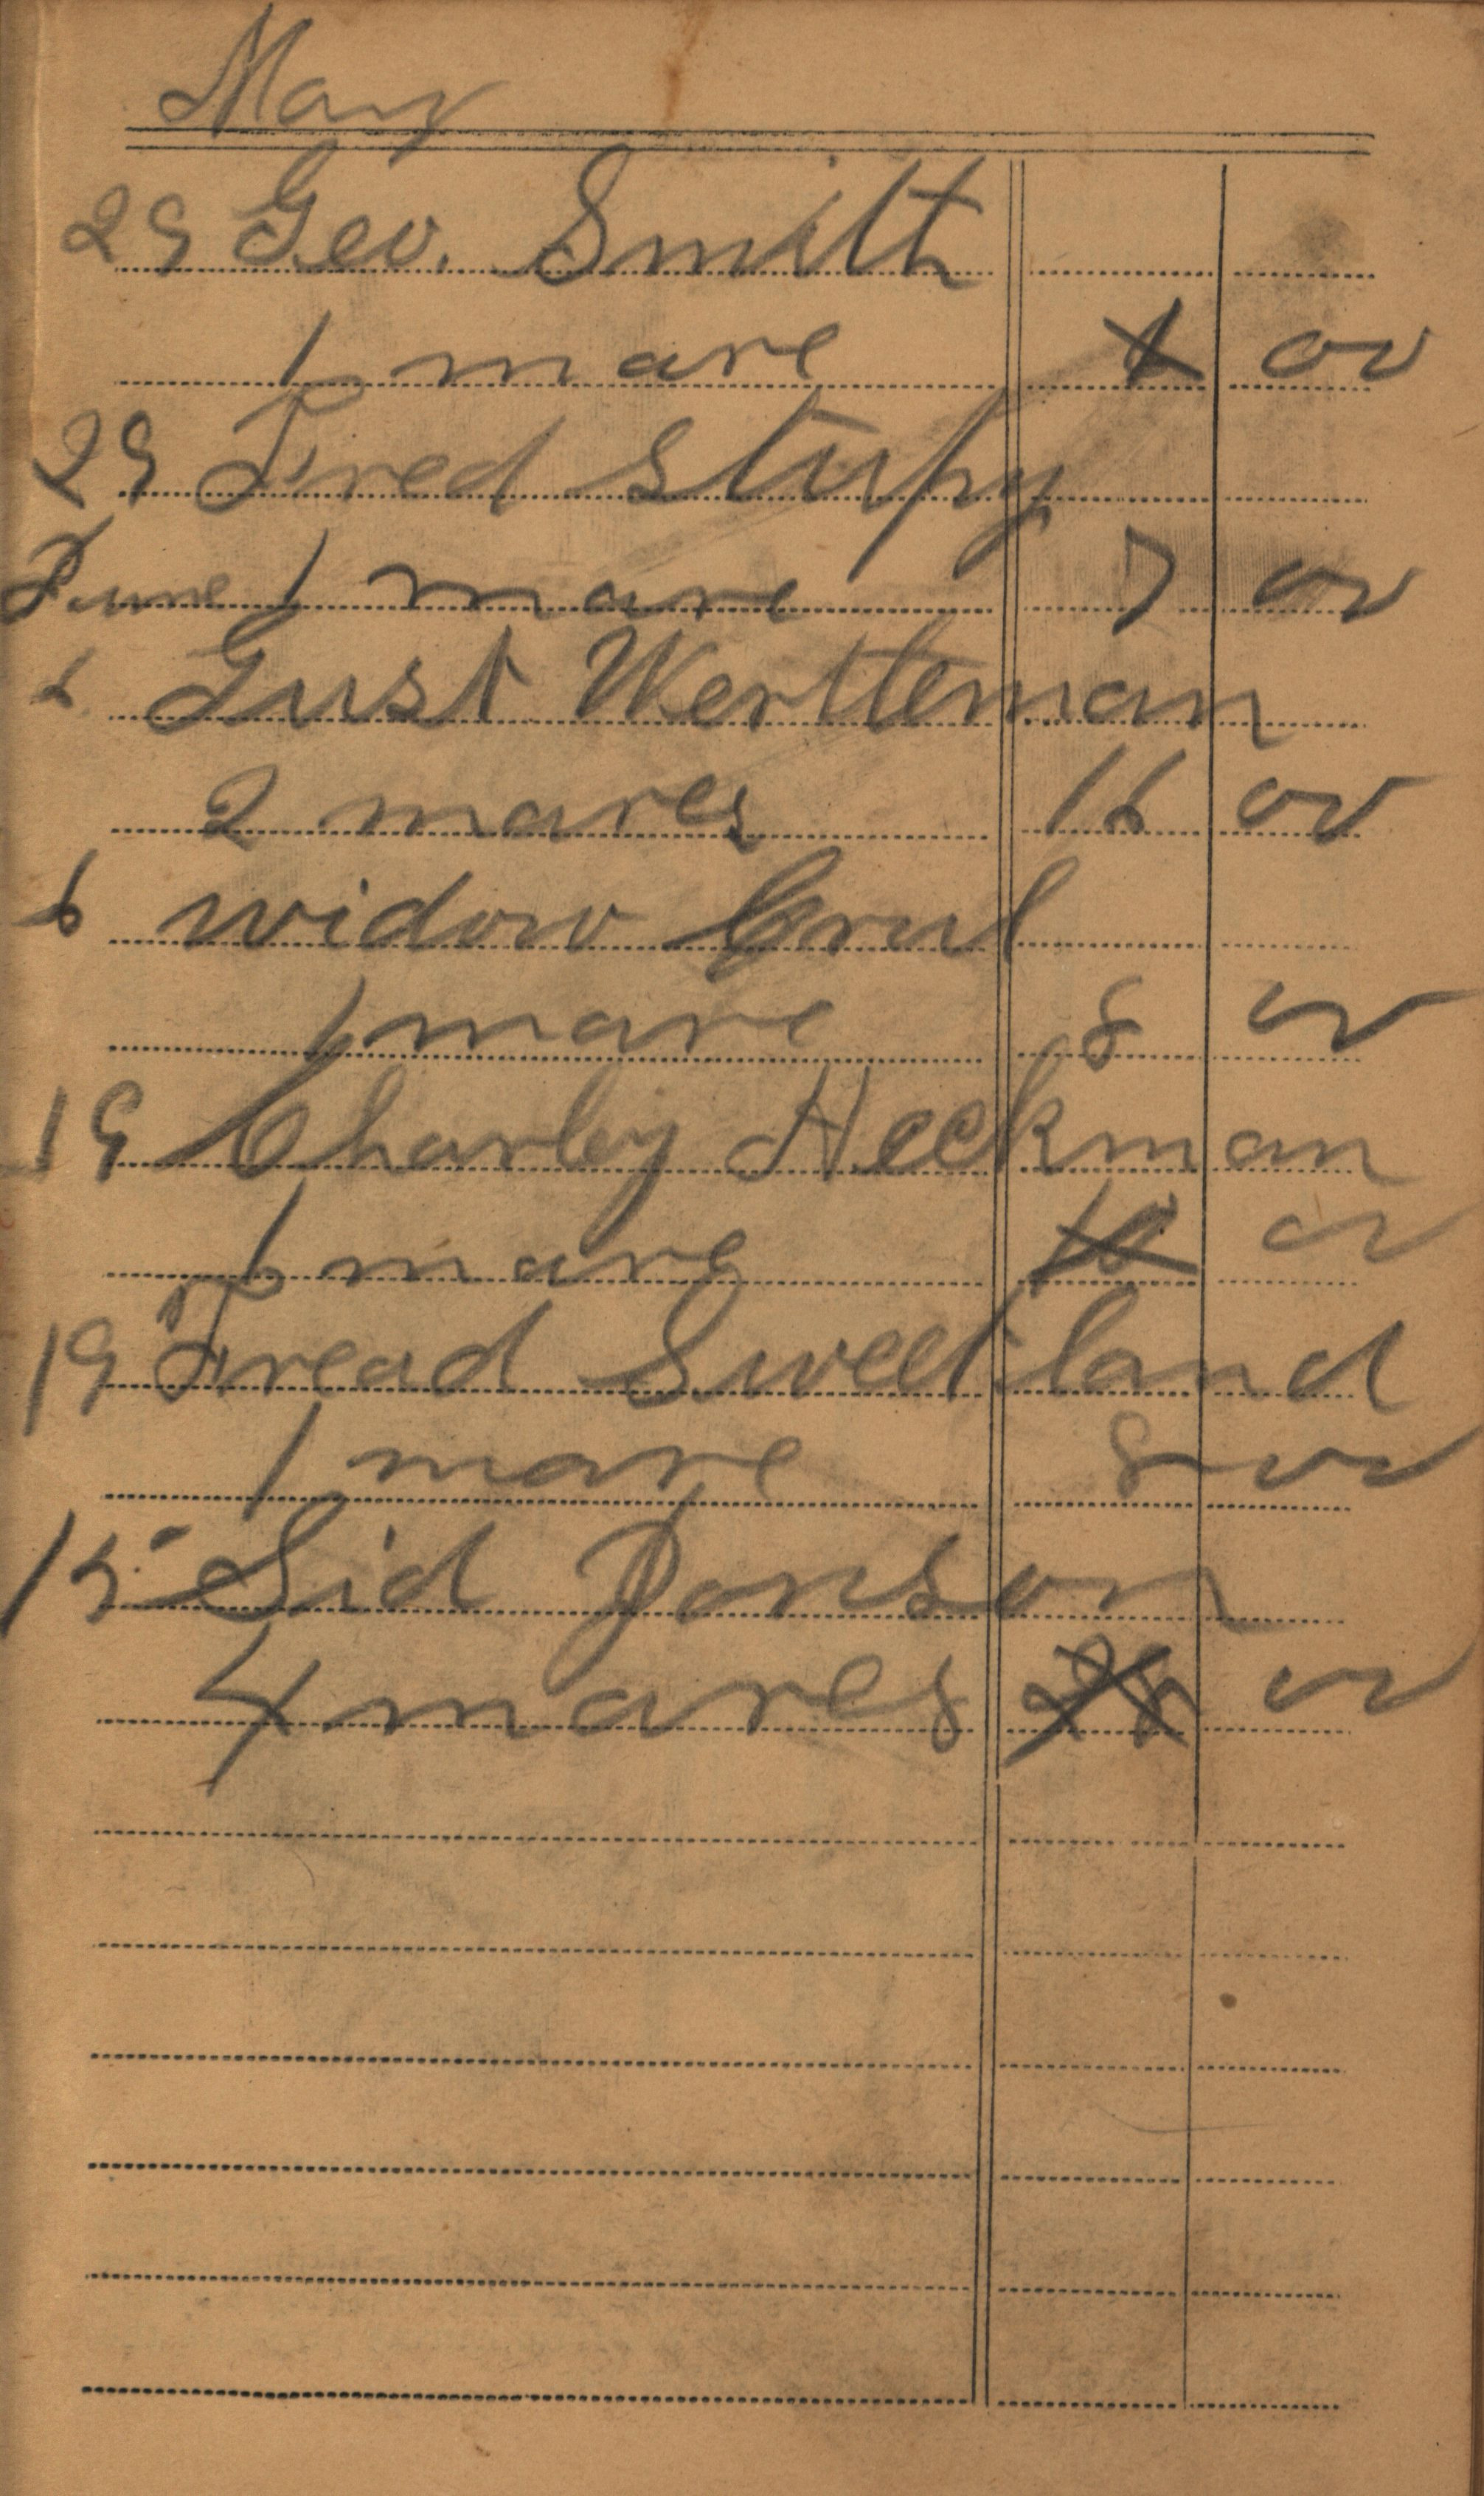 May
29 Geo. Smith
1 mare 00
29 Fred Stupy
June 1 mare 7 00
6 Gust Wertteman
2 mares 16 00
6 widow Crul
1 mare 8 00
19 Charley Heckman
1 mare 10 00
19 Fread Sweetland
1 mare 8 00
15 Sid Jonson
4 mares 28 00